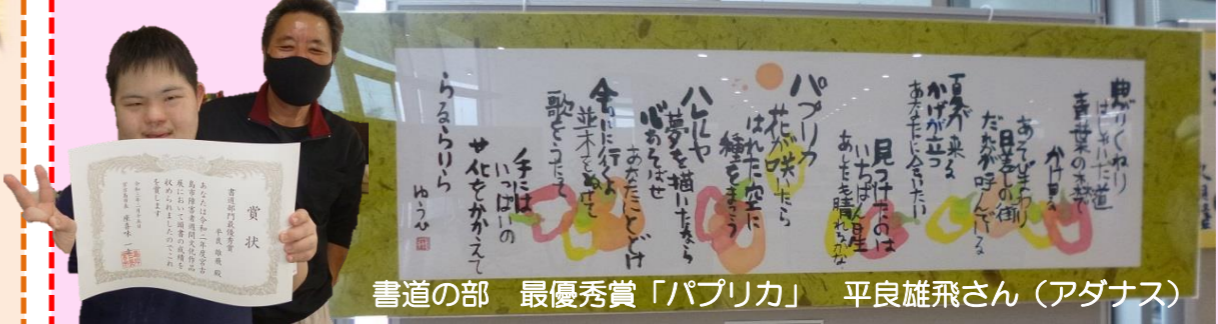 賞状
書道部門最優秀賞
平良 雄飛 殿
あなたは令和二年度宮古
島市障害者週間文化作品
展において頭書の成績を
収められましたのでこれ
を賞します
宮古島市長 座喜味 一幸
曲がりくねり
はしゃいだ道
青葉の森で
かけ回る
あそびまわり
日差しの街
だれかが呼んでいる
夏が来る
かげが立つ
あなたに会いたい
見つけたのは
いちばん星
あしたも晴れるかな
パプリカ
花が咲いたら
はれた空に
種をまこう
ハレルヤ
夢を描いたなら
心あそばせ
あなたにとどけ
会いに行くよ
並木をぬけて
歌をうたって
手には
いっぱいの
花をかかえて
らるらりら
ゆうひ
書道の部 最優秀賞「パプリカ」 平良雄飛さん（アダナス）